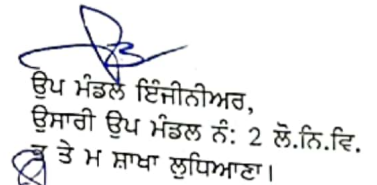 ਉਪ ਮੰਡਲ ਇੰਜੀਨੀਅਰ,
ਉਸਾਰੀ ਉਪ ਮੰਡਲ ਨੰ: 2 ਲੋ.ਨਿ.ਵਿ.
ਤੇ ਮ ਸ਼ਾਖਾ ਲੁਧਿਆਣਾ।